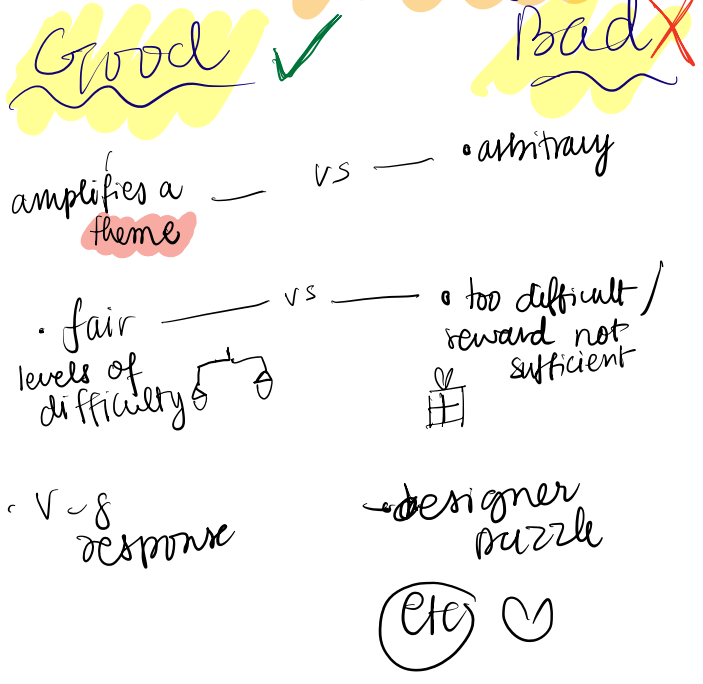 Good
Bad
amplifies a
theme
vs
• arbitrary
• fair
levels of
difficulty
vs
• too difficult /
reward not
sufficient
• V - 8
response
designer
puzzle
etc